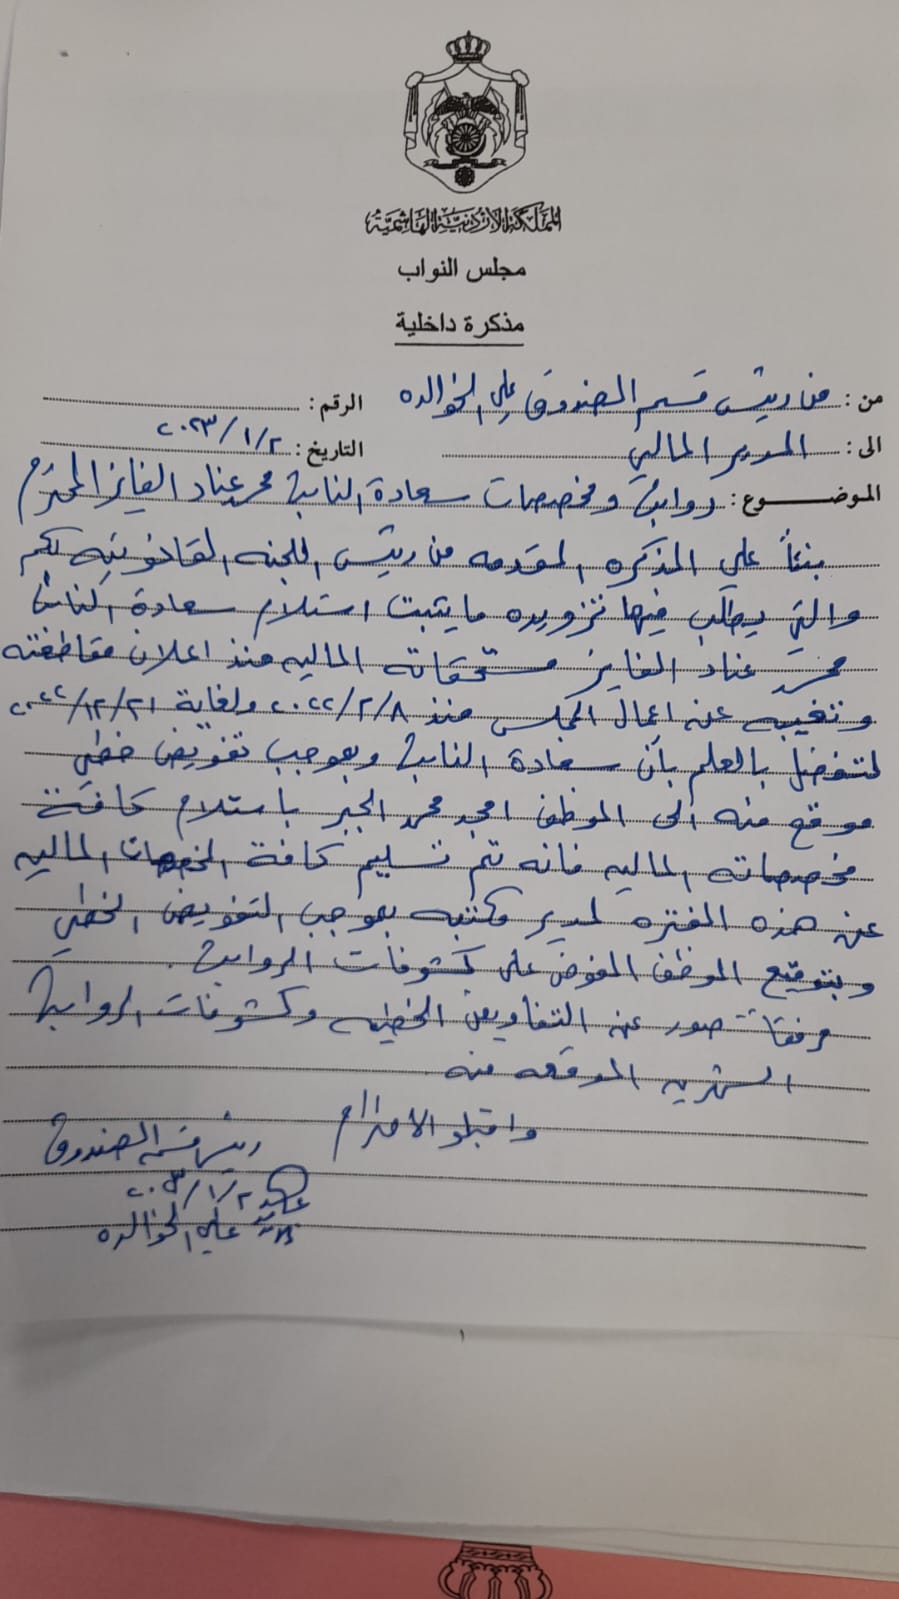 المملكة الأردنية الهاشمية
مجلس النواب
مذكرة داخلية
من : من رئيس قسم الصندوق علي الخوالده
الرقم :
الى : المدير المالي
التاريخ : ٢٠٢٣/١/٢
الموضوع : رواتب ومخصصات سعادة النائب محمد عناد الفايز المحترم
بناءً على المذكره المقدمه من رئيس اللجنه القانونيه لكم
والتي يطلب فيها تزويده ما يثبت استلام سعادة النائب
محمد عناد الفايز مستحقاته الماليه منذ اعلان مقاطعته
وتغيبه عن اعمال المجلس منذ ٢٠٢٢/٢/٨ ولغاية ٢٠٢٢/١٢/٣١
لتتفضل بالعلم بأن سعادة النائب وبموجب تفويض خطي
موقع منه الى الموظف امجد محمد الجبر باستلام كافة
مخصصاته الماليه فانه تم تسليم كافة المخصصات الماليه
عن هذه الفتره لمدير مكتبه بموجب التفويض الخطي
وبتوقيع الموظف المفوض على كشوفات الرواتب .
مرفقاً صور عن التفاويض الخطيه وكشوفات الرواتب
الشهريه الموقعه منه
واقبلوا الاحترام
رئيس قسم الصندوق
٢٠٢٣/١/٢
علي الخوالده